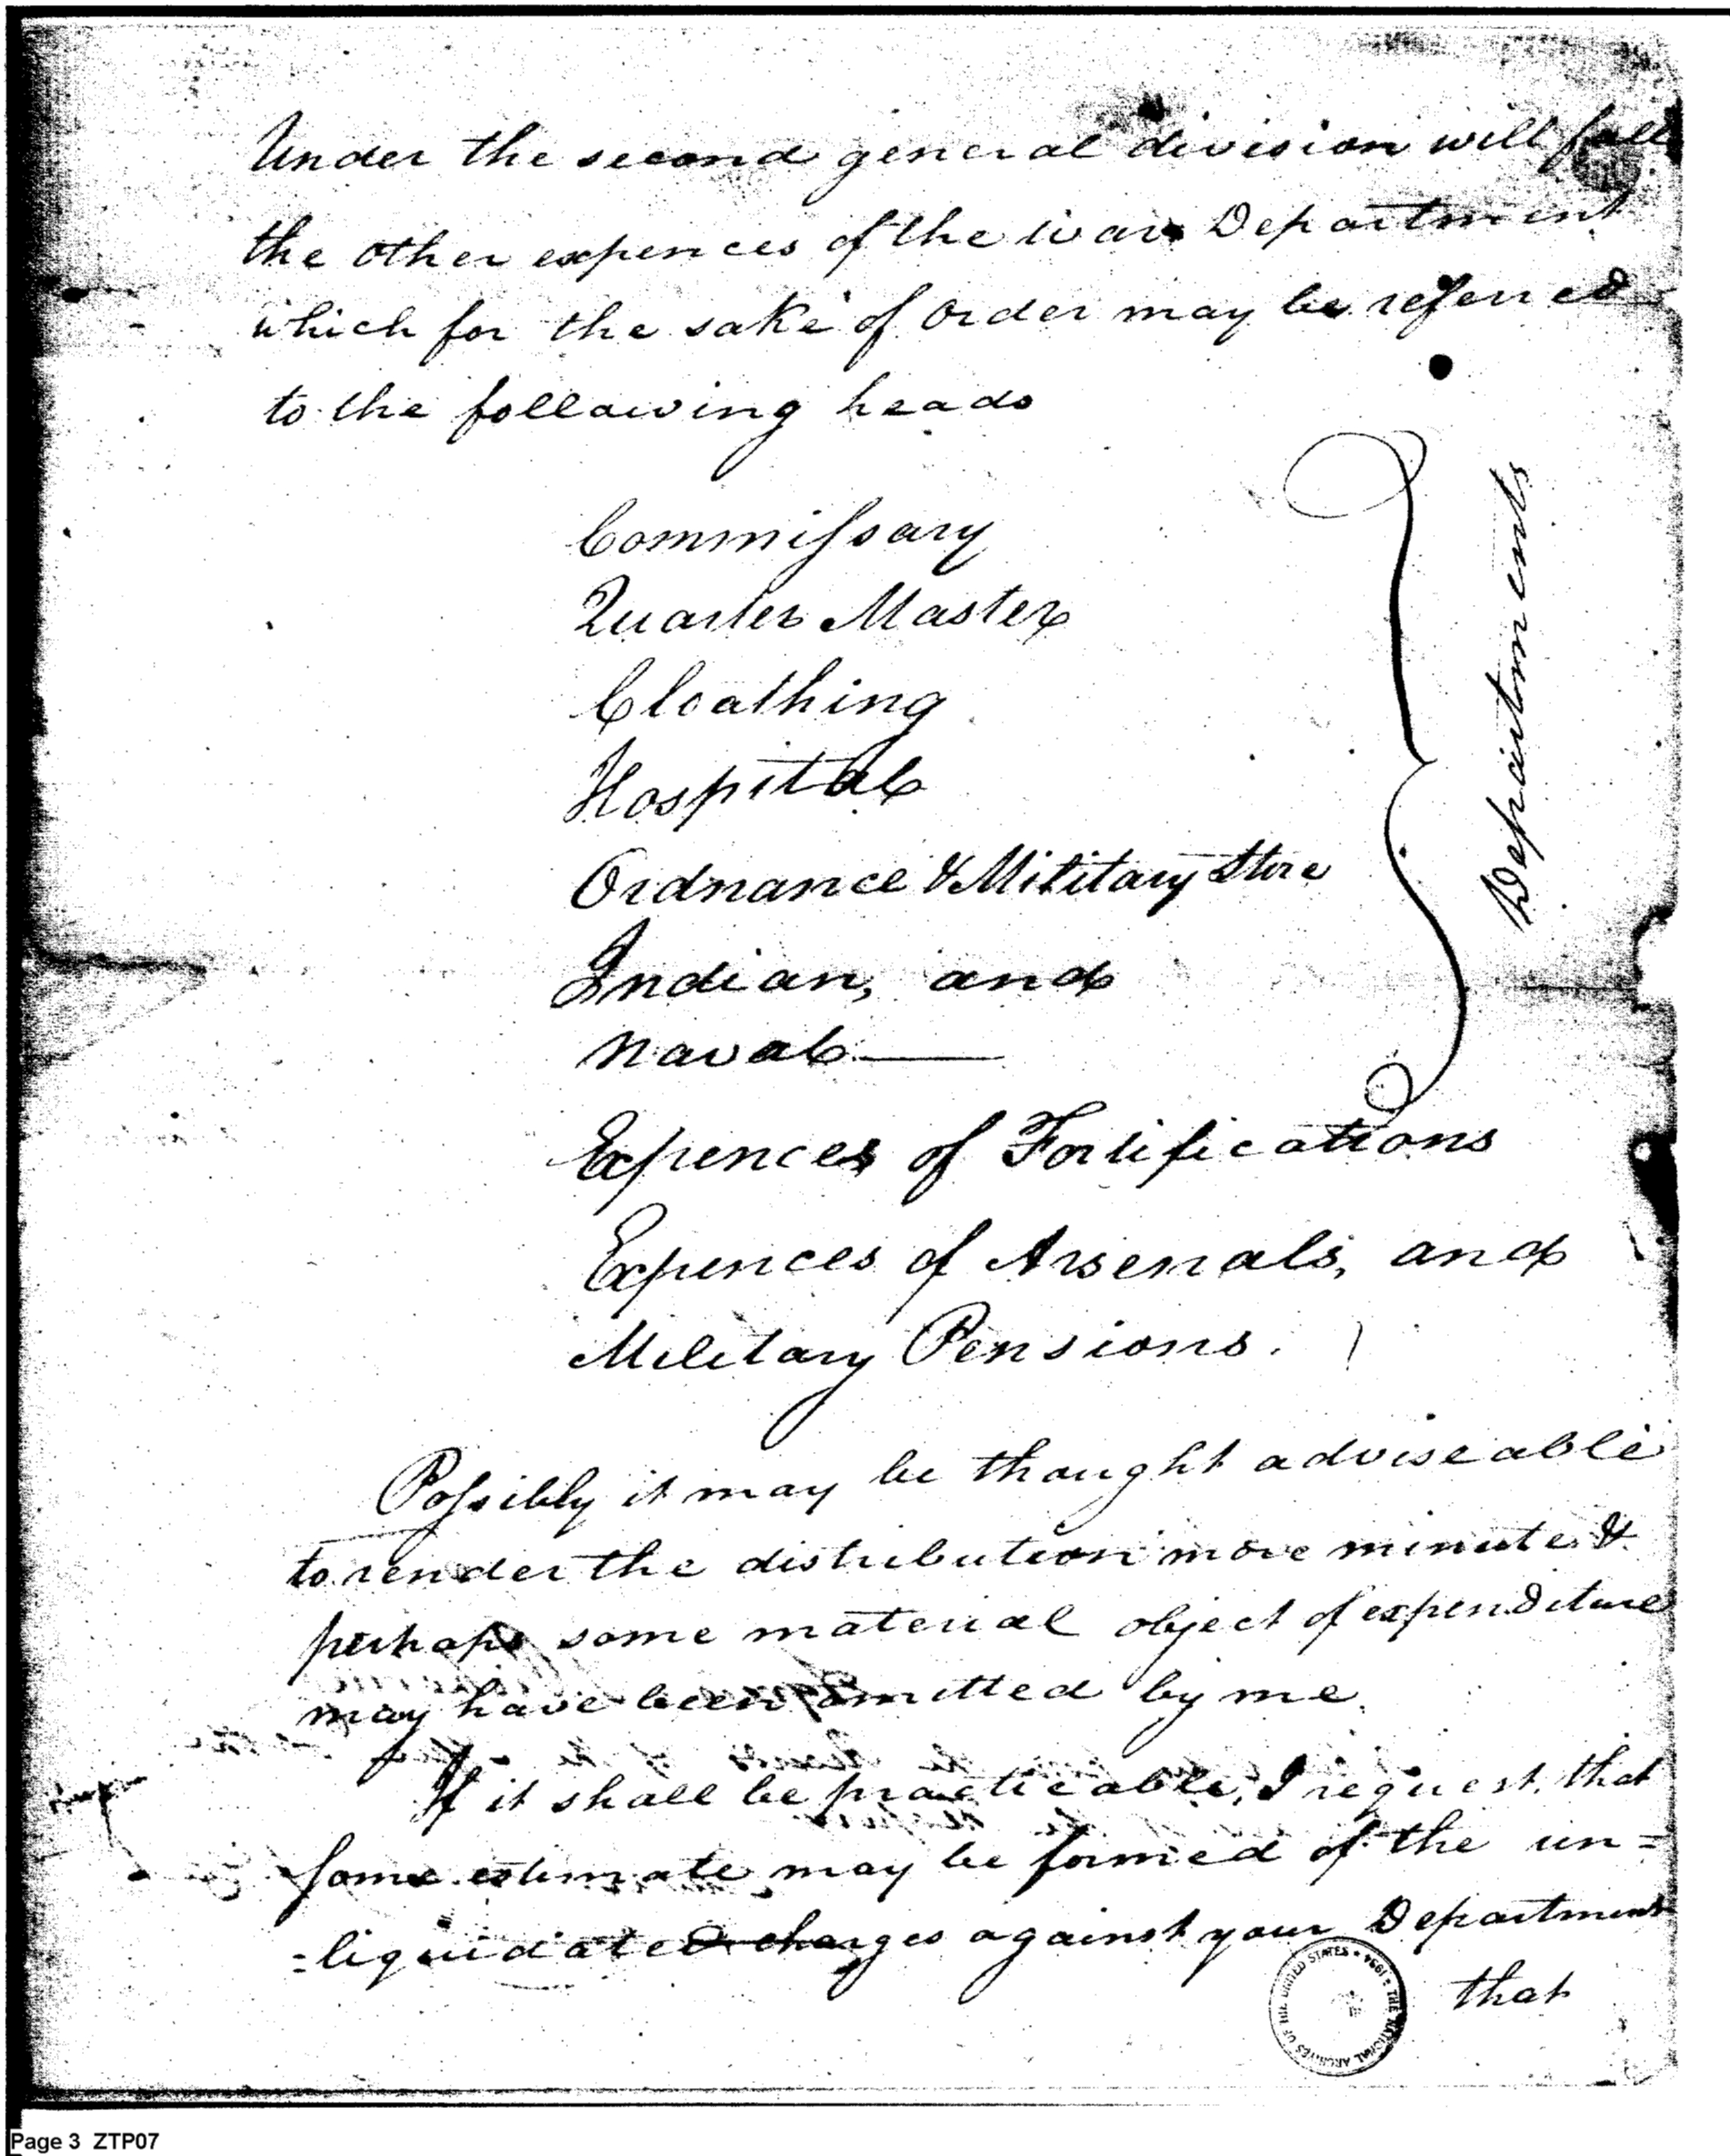 Under the second general division will fall
the other expences of the war Department
which for the sake of Order may be referred
to the following heads
Commissary
Quarter Master
Cloathing
Hospital
Ordnance & Military Store
Indian, and
Naval
Departments
Expences of Fortifications
Expences of Arsenals, and
Military Pensions.
Possibly it may be thought adviseable
to render the distribution more minute &
perhaps some material object of expenditure
may have been omitted by me.
If it shall be practicable, I request that
some estimate may be formed of the un=
=liquidated charges against your Department
that
THE NATIONAL ARCHIVES OF THE UNITED STATES • 1934
Page 3 ZTP07